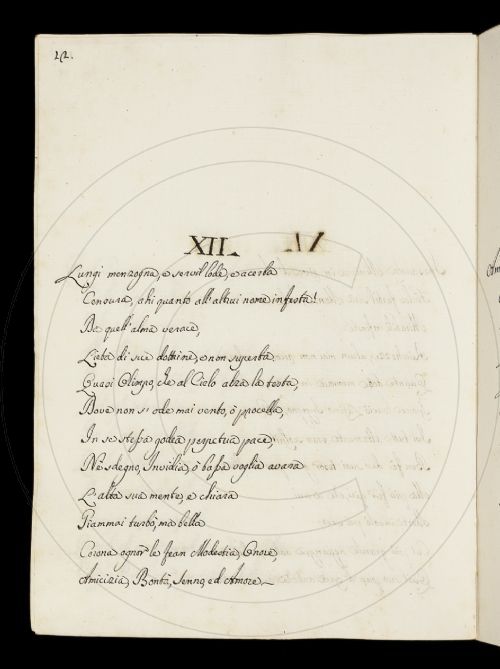 22.
XII.
Lungi menzogna, e servil lode, e acerba
Censura, ahi quanto all'altrui nome infesta!
De quell'alma verace,
Lieta di sue dottrine, e non superba,
Quasi Olimpo, che al Cielo alza la testa,
Dove non s'ode mai vento, ò procella,
In se stessa godea perpetua pace;
Nè sdegno, Invidia, ò bassa voglia avara
L'alta sua mente, e chiara
Giammai turbò, ma bella
Corona ognor le fean Modestia, Onore,
Amicizia, Bontà, Senno, ed Amore.